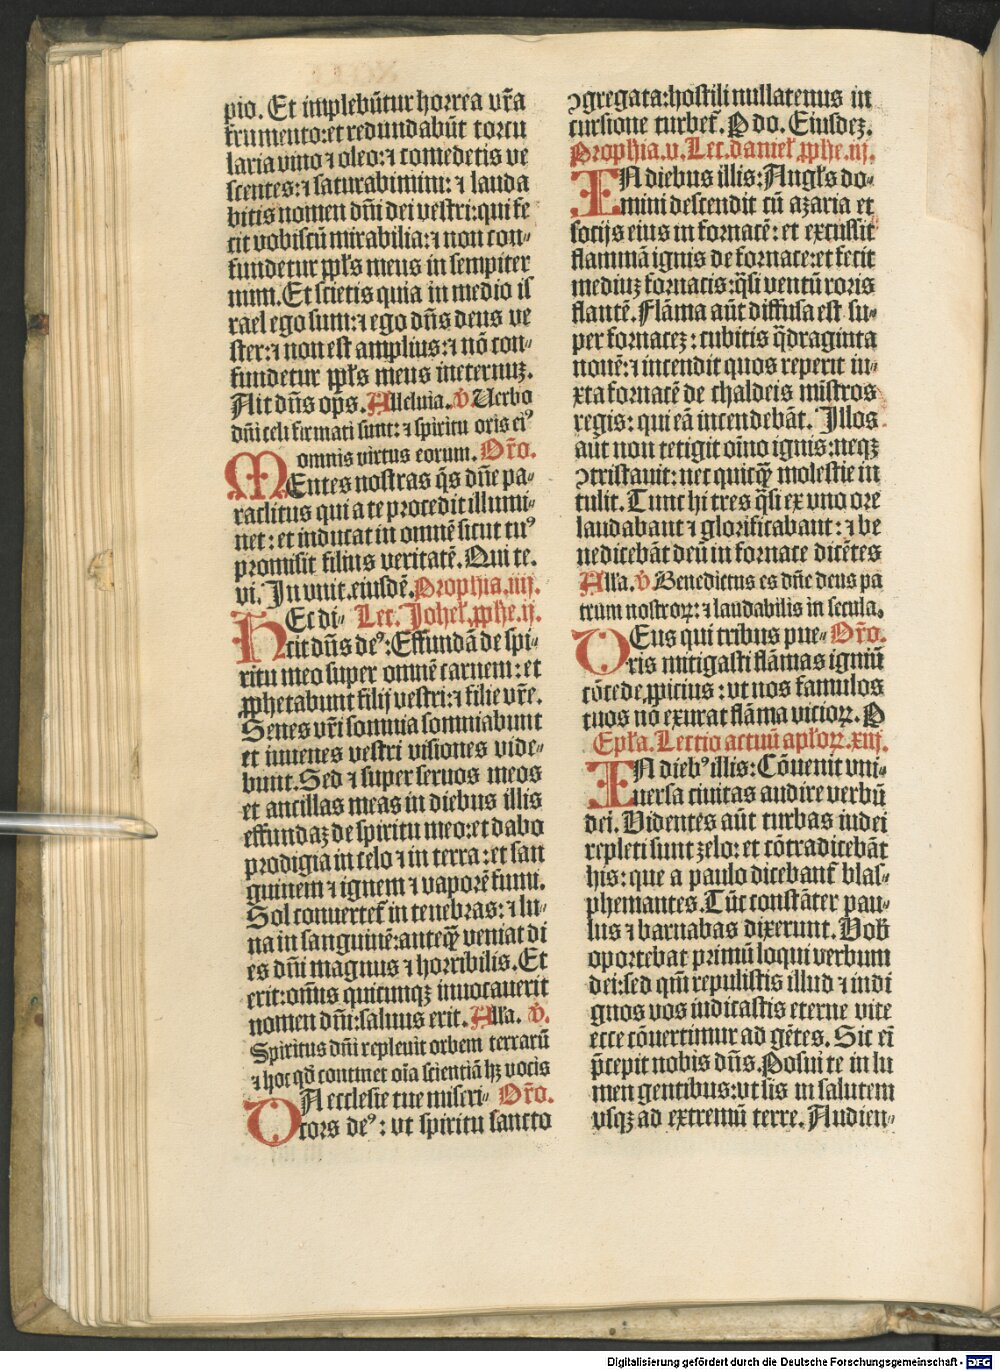 pio. Et implebūtur horrea vr̄a
frumento:et redundabūt torcu
laria vino ⁊ oleo:⁊ comedetis ve
scentes:⁊ saturabimini: ⁊ lauda
bitis nomen dn̄i dei vestri:qui fe
cit vobiscū mirabilia:⁊ non con-
fundetur ppl̄s meus in sempiter
num. Et scietis quia in medio is
rael ego sum:⁊ ego dn̄s deus ve
ster:⁊ non est amplius:⁊ nō con-
fundetur ppl̄s meus ineternuꝫ.
Ait dn̄s op̄s. Alleluia. ℣ Uerbo
dn̄i celi firmati sunt: ⁊ spiritu oris eiꝰ
omnis virtus eorum. Or̄o.
MEntes nostras q̄s dn̄e pa-
raclitus qui a te procedit illumi-
net: et inducat in omnē sicut tuꝰ
promisit filius veritatē. Qui te.
vi. In vnit. eiusdē. Prophia .iiij.
HEc di- Lec. Johel̄. ꝓphe .ij.
cit dn̄s deꝰ: Effundā de spi-
ritu meo super omnē carnem: et
ꝓphetabunt filij vestri:⁊ filie vr̄e.
Senes vr̄i somnia somniabunt
et iuuenes vestri visiones vide-
bunt. Sed ⁊ super seruos meos
et ancillas meas in diebus illis
effundaꝫ de spiritu meo:et dabo
prodigia in celo ⁊ in terra: et san
guinem ⁊ ignem ⁊ vaporē fumi.
Sol conuertet̄ in tenebras: ⁊ lu-
na in sanguinē:anteqꝫ̄ veniat di
es dn̄i magnus ⁊ horribilis. Et
erit:om̄s quicunqꝫ inuocauerit
nomen dn̄i:saluus erit. Alla. ℣.
Spiritus dn̄i repleuit orbem terrarū
⁊ hoc qd̄ continet oīa scientiā hꝫ vocis
DA ecclesie tue miseri- Or̄o.
cors deꝰ: vt spiritu sancto
ↄgregata:hostili nullatenus in
cursione turbet̄. P do. Eiusdeꝫ.
Prophia .v. Lec. daniel̄. ꝓphe .iij.
IN diebus illis: Angl̄s do-
mini descendit cū azaria et
socijs eius in fornacē: et excussit
flammā ignis de fornace:et fecit
mediuꝫ fornacis:q̄si ventū roris
flantē. Flāma aūt diffusa est su-
per fornaceꝫ: cubitis q̄draginta
nouē:⁊ incendit quos reperit iu-
xta fornacē de chaldeis mīstros
regis: qui eā incendebāt. Illos
aūt non tetigit oīno ignis:neqꝫ
ↄtristauit: nec quicqꝫ̄ molestie in
tulit. Tunc hi tres q̄si ex vno ore
laudabant ⁊ glorificabant: ⁊ be
nedicebāt deū in fornace dicētes
Alla. ℣ Benedictus es dn̄e deus pa
trum nostroꝝ: ⁊ laudabilis in secula.
DEus qui tribus pue- Or̄o.
ris mitigasti flāmas igniū
cōcede ꝓpicius: vt nos famulos
tuos nō exurat flāma vicioꝝ. P
Epl̄a. Lectio actuū apl̄oꝝ. xiij.
IN diebꝰ illis: Cōuenit vni-
uersa ciuitas audire verbū
dei. Videntes aūt turbas iudei
repleti sunt zelo: et cōtradicebāt
his: que a paulo dicebant̄ blas-
phemantes. Tūc constāter pau-
lus ⁊ barnabas dixerunt. Vob̄
oportebat primū loqui verbum
dei:sed qm̄ repulistis illud ⁊ indi
gnos vos iudicastis eterne vite
ecce cōuertimur ad gētes. Sic eī
p̄cepit nobis dn̄s. Posui te in lu
men gentibus:vt sis in salutem
vsqꝫ ad extremū terre. Audien-
Digitalisierung gefördert durch die Deutsche Forschungsgemeinschaft - DFG